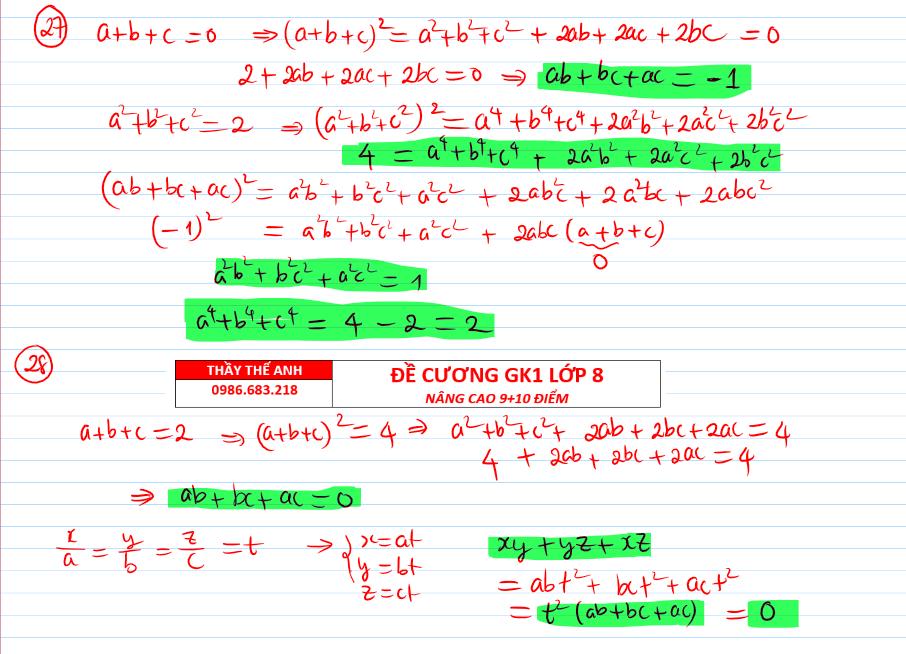 27 a+b+c=0 ⇒ (a+b+c)² = a²+b²+c² + 2ab + 2ac + 2bc = 0
2 + 2ab + 2ac + 2bc = 0 ⇒ ab + bc + ac = -1
a²+b²+c² = 2 ⇒ (a²+b²+c²)² = a⁴+b⁴+c⁴ + 2a²b² + 2a²c² + 2b²c²
4 = a⁴+b⁴+c⁴ + 2a²b² + 2a²c² + 2b²c²
(ab+bc+ac)² = a²b² + b²c² + a²c² + 2ab²c + 2a²bc + 2abc²
(-1)² = a²b² + b²c² + a²c² + 2abc (a+b+c)
0
a²b² + b²c² + a²c² = 1
a⁴+b⁴+c⁴ = 4 - 2 = 2
28
THẦY THẾ ANH
0986.683.218
ĐỀ CƯƠNG GK1 LỚP 8
NÂNG CAO 9+10 ĐIỂM
a+b+c = 2 ⇒ (a+b+c)² = 4 ⇒ a²+b²+c² + 2ab + 2bc + 2ac = 4
4 + 2ab + 2bc + 2ac = 4
⇒ ab + bc + ac = 0
x/a = y/b = z/c = t → { x = at
y = bt
z = ct
xy + yz + xz
= abt² + bct² + act²
= t² (ab+bc+ac) = 0